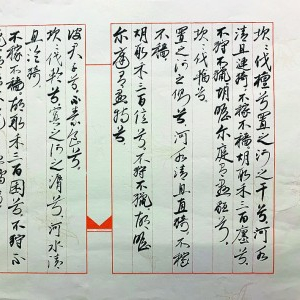 坎坎伐檀兮置之河之干兮河水
清且涟猗不稼不穑胡取禾三百廛兮
不狩不猎胡瞻尔庭有县貆兮
坎坎伐辐兮
置之河之侧兮河水清且直猗不稼
不穑
胡取禾三百億兮不狩不猎胡瞻
尔庭有县特兮
彼君子兮不素食兮
坎坎伐轮兮寘之河之漘兮河水清
且沦猗
不稼不穑胡取禾三百囷兮不狩不